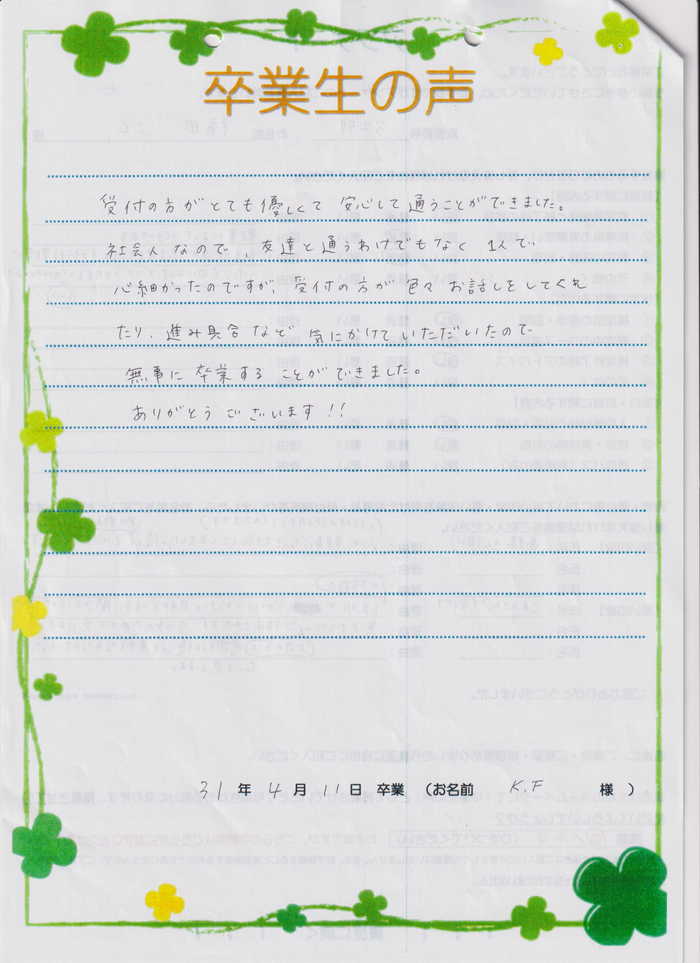 卒業生の声
受付の方がとても優しくて 安心して通うことができました。
社会人なので、友達と通うわけでもなく 1人で
心細かったのですが、受付の方が色々 お話しをしてくれ
たり、進み具合など 気にかけていただいたので
無事に卒業する ことができました。
ありがとう ございます!!
31 年 4 月 11 日 卒業 (お名前 K.F 様 )